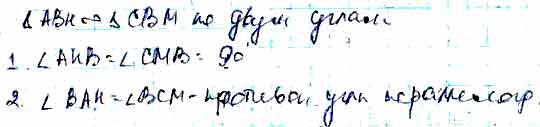 △ ABH ∾ △ CBM по двум углам
1. ∠ AHB = ∠ CMB = 90
2. ∠ BAH = ∠ BCM - противоп. углы параллелогр.